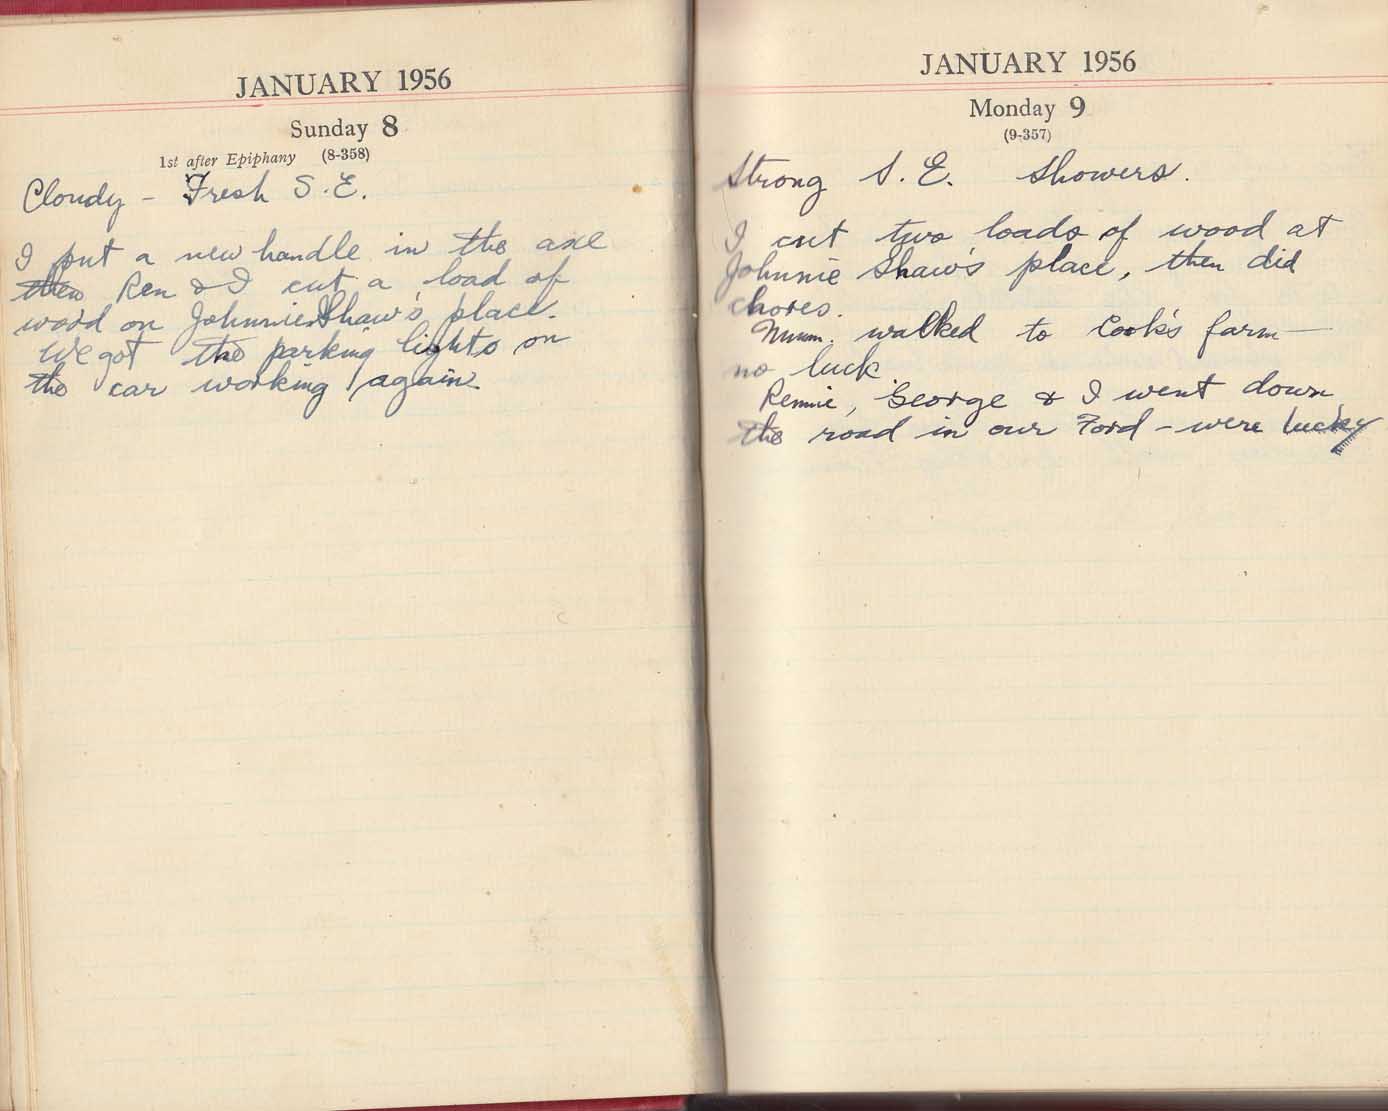 JANUARY 1956
Sunday 8
1st after Epiphany (8-358)
Cloudy - Fresh S.E.
I put a new handle in the axe
then Ren & I cut a load of
wood on Johnnie Shaw's place.
We got the parking lights on
the car working again.
JANUARY 1956
Monday 9
(9-357)
Strong S.E. Showers.
I cut two loads of wood at
Johnnie Shaw's place, then did
chores.
Mum. walked to Cook's farm—
no luck
Rennie, George & I went down
the road in our Ford - were lucky